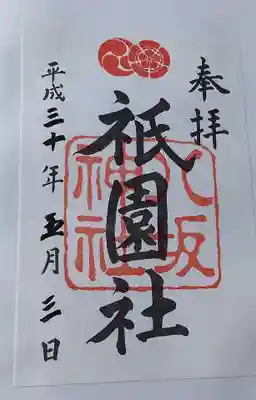 奉拝
八坂
神社
祇園社
平成三十年五月三日